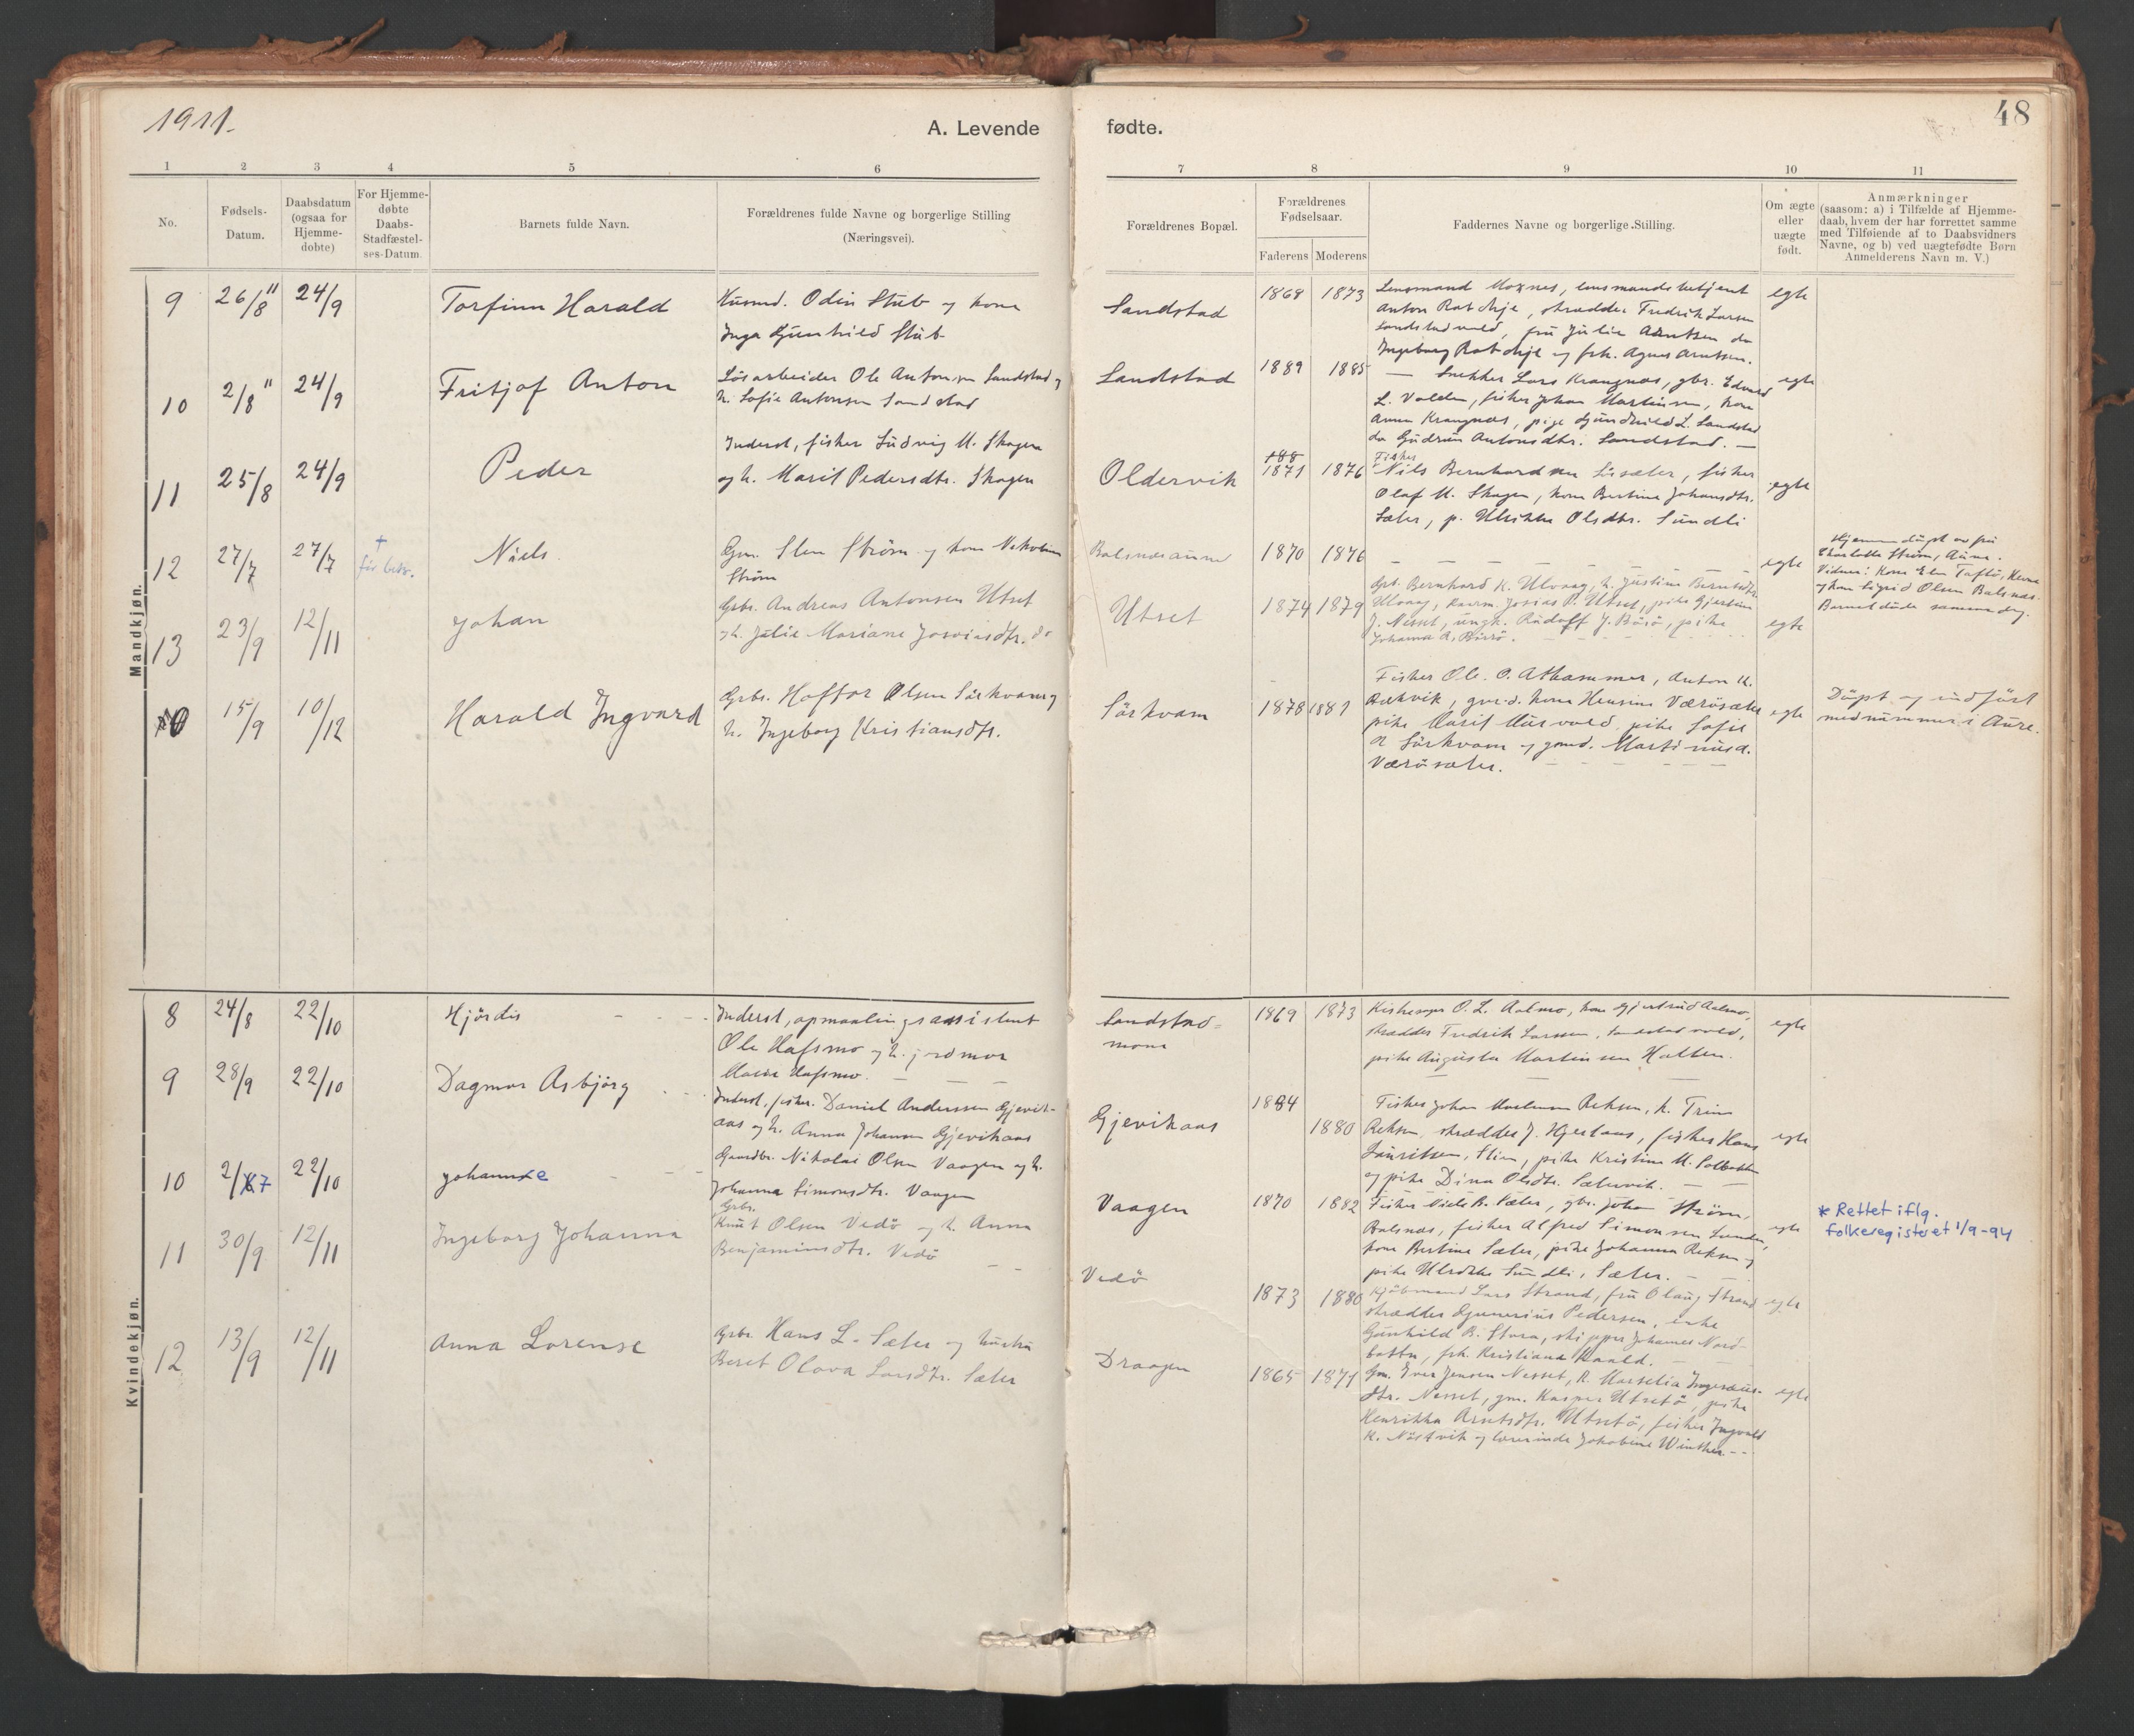 1911.
A. Levende fødte.
48
1 2 3 4 5 6 7 8 9 10 11
No.
Fødsels-
Datum.
Daabsdatum
(ogsaa for
Hjemme-
dobte)
For Hjemme-
døbte
Daabs-
Stadfæstel-
ses-Datum.
Barnets fulde Navn.
Forældrenes fulde Navne og borgerlige Stilling
(Næringsvei).
Forældrenes Bopæl.
Forældrenes
Fødselsaar.
Faderens Moderens
Faddernes Navne og borgerlige Stilling.
Om ægte
eller
uægte
født.
Anmærkninger
(saasom: a) i Tilfælde af Hjemme-
daab, hvem der har forrettet samme
med Tilføiende af to Daabsvidners
Navne, og b) ved uægtefødte Børn
Anmelderens Navn m. V.)
Mandkjøn.
9 26/8 11 24/9 Torfinn Harald
Husmd. Odin Stub og kone
Inga Gunhild Stub
Sandstad 1869 1873
Lensmand Moxnes, lensmandsbetjent
Anton Ratchje, skrædder Fredrik Larsen
Sandstadvold, fru Julie Arntsen do
Ingeborg Ratchje og frk. Agnes Arntsen.
egte
10 2/8 11 24/9 Fritjof Anton
Løsarbeider Ole Antonsen Sandstad og
h. Sofie Antonsen Sandstad
Sandstad 1889 1885
— Snekker Lars Krangnæs, gbr. Edvard
L. Valden, fisker Johan Martinsen, kone
Anna Krangnæs, pige Gundhild L. Sandstad
do Gudrun Antonsdtr. Sandstad. —
egte
11 25/8 24/9 Peder
Inderst, fisker Ludvig M. Skagen
og h. Marit Pedersdtr. Skagen
Oldervik 188
1871 1876
Fisker
Nils Bernhardsen Lisæter, fisker
Olaf M. Skagen, kone Bertine Johansdtr.
Sæter, p. Ulrikke Olsdtr. Sundli
egte
12 27/7 27/7 † før bekr. Niels.
Gm. Sten Strøm og kone Nikoline
Strøm
Balsnæsaune 1870 1876
— — — — — —
egte
Hjemmedøpt av fru
Charlotte Strøm, Aune.
Vidner: Kone Elen Taftø,
og kone Sigrid Olsen Balsnæs.
Barnet døde samme dag.
13 23/9 12/11 Johan
Grbr. Andreas Antonsen Utset
og h. Julie Mariane Josviasdtr. do
Utset 1874 1879
Grb. Bernhard K. Ulvaag, h. Justine Berntsdtr.
Ulvaag, Josias P. Utset, pike Gjertine
J. Nesset, ungk. Rudolf J. Börö, pike
Johanna R. Börö.
egte
0 15/9 10/12 Harald Ingvard
Grbr. Haftor Olsen Sørkvam og
h. Ingeborg Kristiansdtr.
Sørkvam 1878 1881
Fisher Ole O. Athammer, Anton U.
Rækvik, gmd. kone Hensine Værösæter
pike Marit Husvold, pike Sofie
O Sörkvam og gmd. Martinus A.
Værösæter.
egte
Döpt og indført
med nummer i Aure.
Kvindekjøn.
8 24/8 22/10 Hjördis
Inderst, opmaalingsassistent
Ole Hafsmo og h. jordmor
Marie Hafsmo.
Sandstad-
moen 1869 1873
Kirkesanger O. L. Aalmo, kone Gjertrud Aalmo,
skrædder Fredrik Larssen, Sandstadvold,
pike Augusta Martinsen Hatten.
egte
9 28/9 22/10 Dagmar Asbjörg
Inderst, fisker. Daniel Anderssen Gjevik-
aas og h. Anna Johanna Gjevikaas
Gjevikaas 1884 1880
Fisker Johan Reksen, h. Trine
Reksen, skrædder J. Hjertaas, fisker Hans
Lauritsen, Stien, pike Kristine M. Solbakken
og pike Dina Olsdtr. Sætervik.
egte
10 2/7 22/10 Johanne
Gaardbr. Nikolai Olsen Vaagen og h.
Johanna Simonsdtr. Vaagen
Vaagen 1870 1882
Fisker Niels B. Sæter, gbr. John Strøm,
Balsnæs, fisker Alfred Simonsen Sunden,
kone Bertine Sæter, pike Johanna Reksen og
pike Ulrikke Sundli, Sæter.
egte
* Rettet iflg.
folkeregisteret 1/9-94
11 30/9 12/11 Ingeborg Johanna
Grbr.
Knut Olsen Vedö og h. Anna
Benjaminsdtr. Vedö
Vedö 1873 1880
Kjöbmand Lars Strand, fru Olaug Strand
skrædder Gunerius Pedersen, enke
Gunhild B. Stora, skipper Johannes Nord-
botten, frk. Kristiana Kaald.
egte
12 13/9 12/11 Anna Lorense
Grbr. Hans L. Sæter og hustru
Beret Olava Larsdtr. Sæter
Draagen 1865 1871
Gm. Iver Jensen Nesset, h. Marselia
dtr. Nesset, gm. Kasper Utsetö, pike
Henrikka Arntsdtr. Utsetö, fisker Ingvald
K. Nöstvik og lærerinde Jakobine Winther.
egte